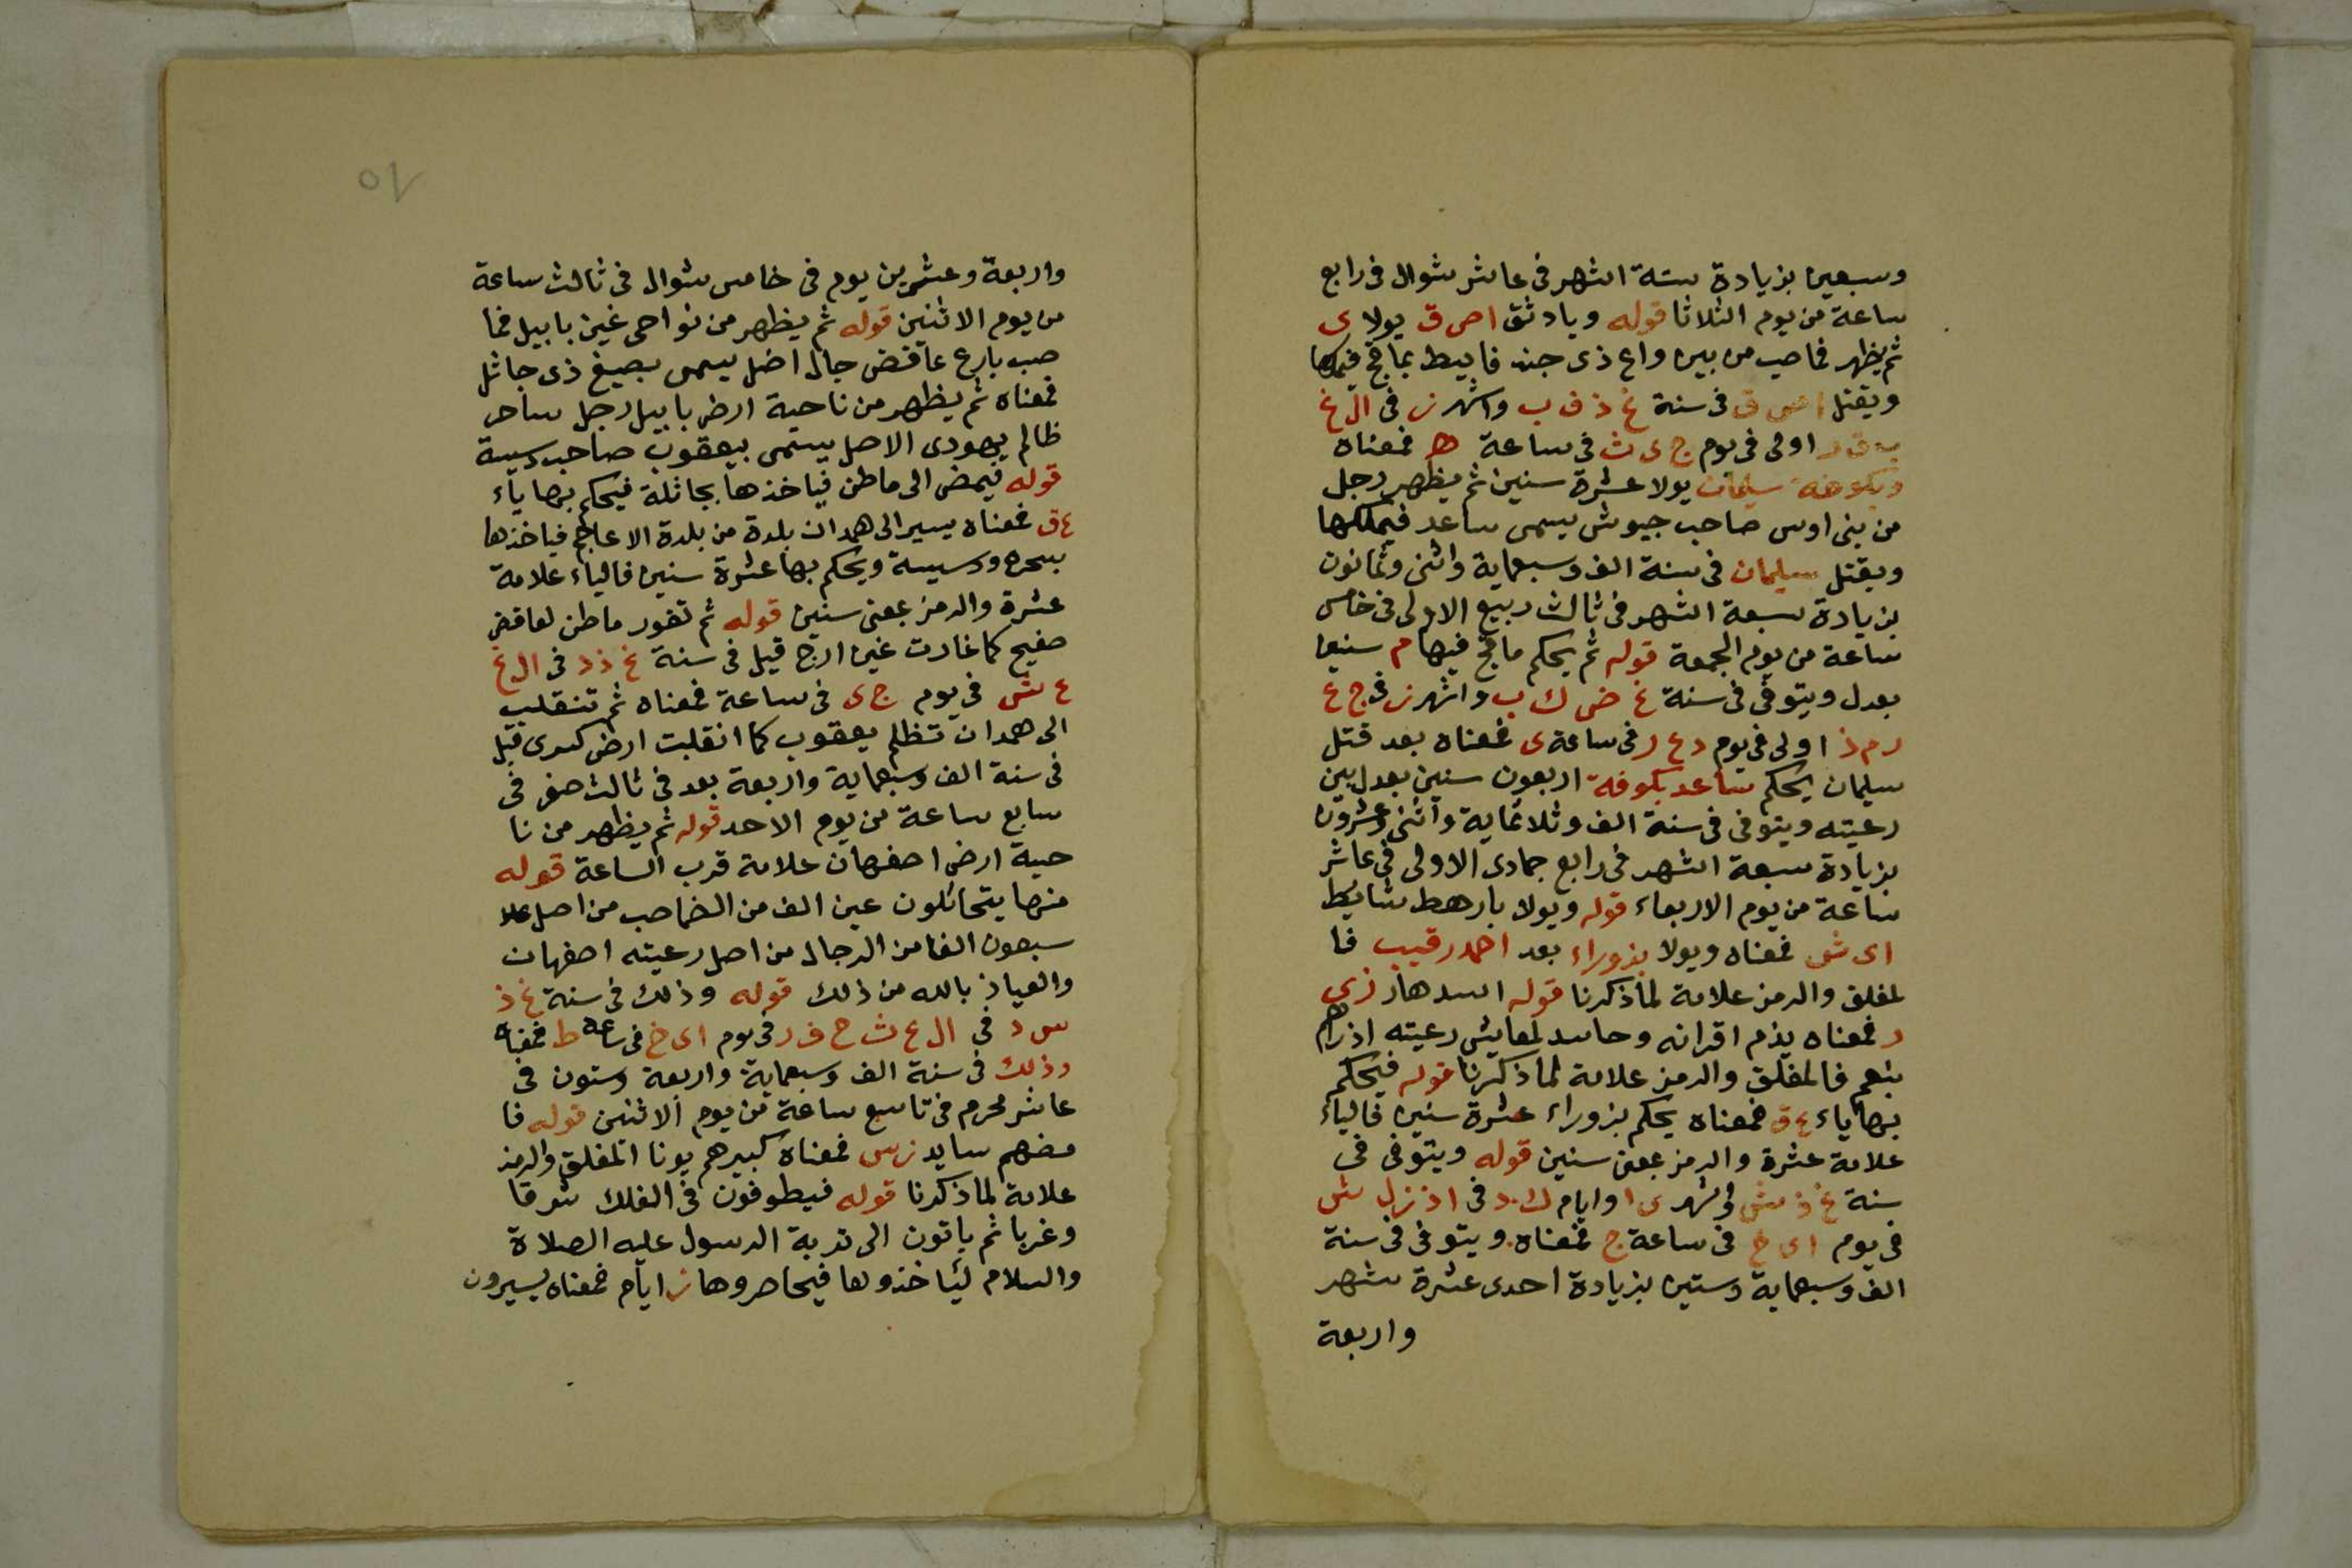 وسبعين بزيادة ستة اشهر فى عاشر شوال فى رابع
ساعة من يوم الثلاثا قوله وبادثق اص ق يولا ى
ثم يظهر فاصب من بين واع ذى جند فابيط بماقح
ويقتل اص ق فى سنة غ ذ ف ب واشهر ز فى ال غ
اولى فى يوم ج ى ث فى ساعة ه فمعناه
وبكوفة سليمان يولا عشرة سنين ثم يظهر رجل
من بنى اوس صاحب جيوش يسمى ساعد فيملكها
ويقتل سليمان فى سنة الف وسبعماية واثنى وثمانون
بزيادة سبعة اشهر فى ثالث ربيع الاولى فى خامس
ساعة من يوم الجمعة قوله ثم يحكم ماقح فيها م سنيعا
بعدل ويتوفى فى سنة غ ض ك ب واشهر ز فى ج ع
ر م ذ اولى فى يوم د ع ر فى ساعة ى فمعناه بعد قتل
سليمان يحكم ساعد بكوفة اربعون سنين بعدل بين
رعيته ويتوفى فى سنة الف وثلاثماية واثنى وعشرون
بزيادة سبعة اشهر فى رابع جمادى الاولى فى عاشر
ساعة من يوم الاربعاء قوله ويولا بارهط شابط
اى ش فمعناه ويولا بزوراء بعد احمد رقيب فا
لمغلق والرمز علامة لما ذكرنا قوله اسد هاز زى
ر فمعناه يذم اقرانه وحاسد لمعايش رعيته اذراهم
بنعم فالمغلق والرمز علامة لما ذكرنا قوله فيحكم
بها ياء ع ق فمعناه يحكم بزوراء عشرة سنين فالياء
علامة عشرة والرمز بمعنى سنين قوله ويتوفى فى
سنة غ ذ ش لى شهر ى ا وايام ك د فى اذ ز ل ش
فى يوم اى خ فى ساعة ج فمعناه ويتوفى فى سنة
الف وسبعماية وستين بزيادة احدى عشرة شهر
واربعة
واربعة وعشرين يوم فى خامس شوال فى ثالث ساعة
من يوم الاثنين قوله ثم يظهر من نواحى غين بابيل فما
صب بارع عاقض جال اضل يسمى بصيغ ذى جاثل
فمعناه ثم يظهر من ناحية ارض بابيل رجل ساحر
ظالم يهودى الاصل يسمى بيعقوب صاحب دسيسة
قوله فيمض الى ماطن فياخذها بجاثلة فيحكم بها ياء
ع ق فمعناه يسير الى همدان بلدة من بلدة الاعاجم فياخذها
بسحره ودسيسة ويحكم بها عشرة سنين فالياء علامة
عشرة والرمز بمعنى سنين قوله ثم تفور ماطن لعاقض
صفيح كما غارت غين ارج قيل فى سنة غ ذ د فى ال غ
ع ش فى يوم ج ى فى ساعة فمعناه ثم تنقلب
الى همدان تظلم يعقوب كما انقلبت ارض كسرى قبل
فى سنة الف وسبعماية واربعة بعد فى ثالث صفر فى
سابع ساعة من يوم الاحد قوله ثم يظهر من نا
حية ارض اصفهان علامة قرب الساعة قوله
منها يتحائلون عين الف من الضماصب من اصل علا
سبعون الفا من الرجال من اصل رعيته اصفهان
والعياذ بالله من ذلك قوله وذلك فى سنة غ ذ
س د فى ال ع ث ح ف ر فى يوم اى خ فى ساعة ط فمعناه
وذلك فى سنة الف وسبعماية واربعة وستون فى
عاشر محرم فى تاسع ساعة من يوم الاثنين قوله فا
مضهم سايد ز س فمعناه كبيرهم يونا المغلق والرمز
علامة لما ذكرنا قوله فيطوفون فى الفلك شرقا
وغربا ثم ياتون الى تربة الرسول عليه الصلاة
والسلام ليئاخذوها فيحاصروها ز ايام فمعناه يسيرون